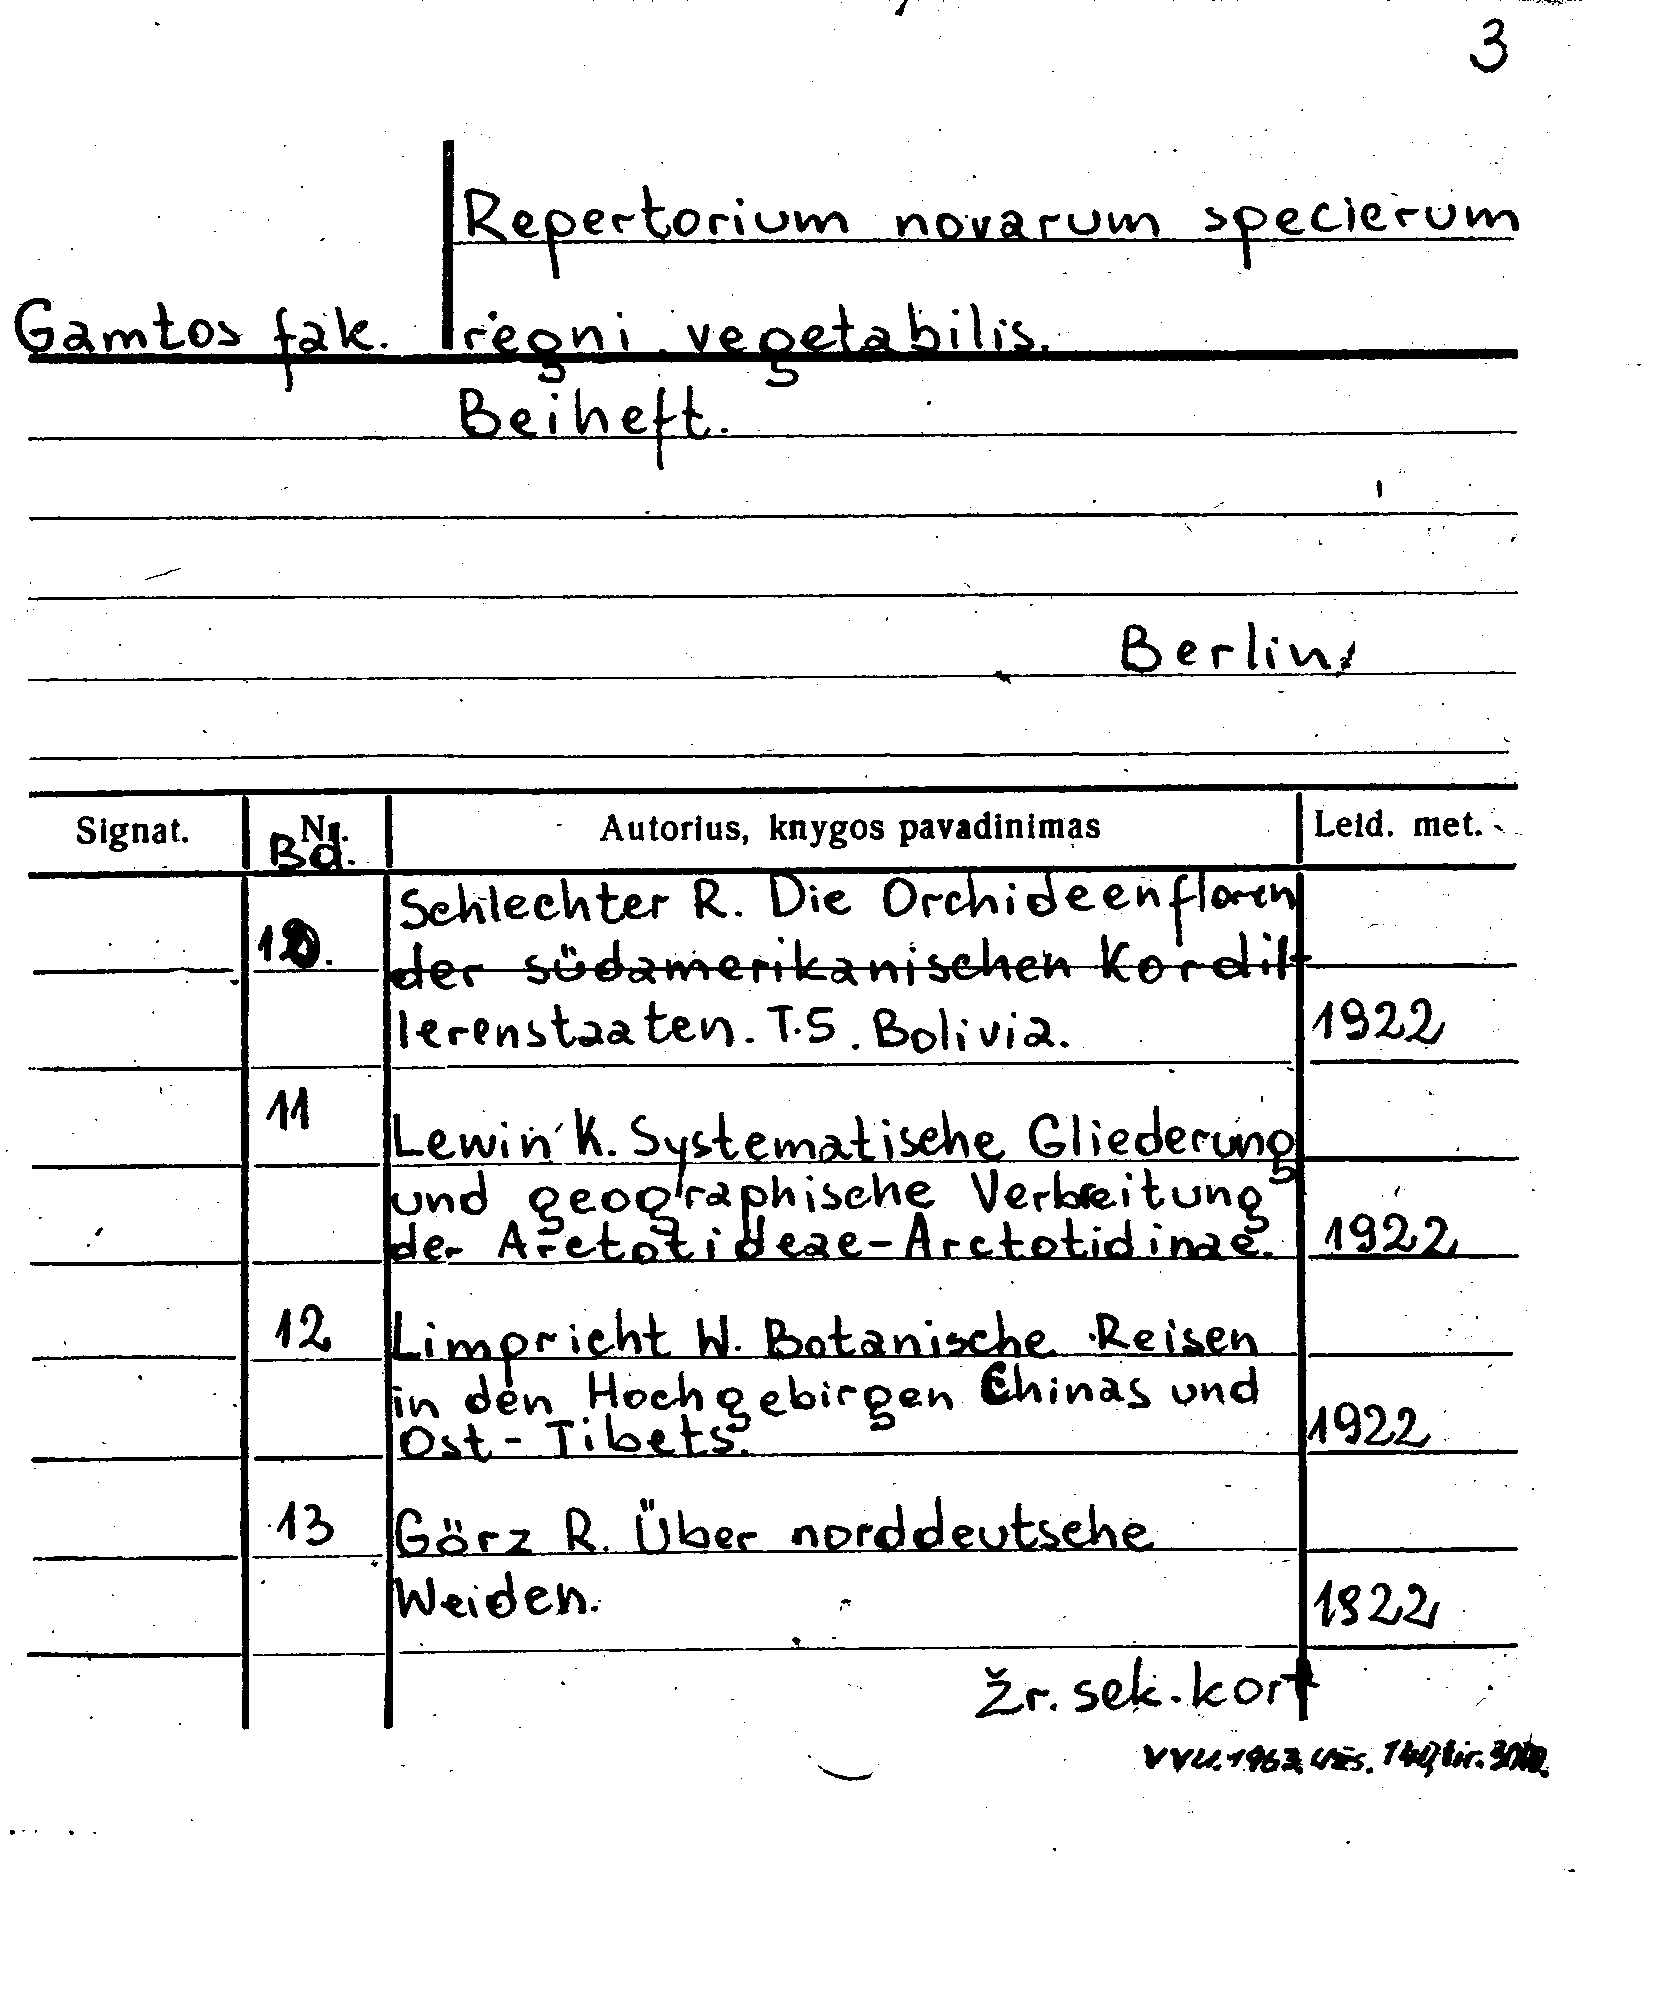 3
Repertorium novarum specierum
Gamtos fak. regni vegetabilis.
Beiheft.
Berlin,
Signat. Nr. Bd. Autorius, knygos pavadinimas Leid. met.
Schlechter R. Die Orchideenfloren
10.
der südamerikanischen Kordil-
lerenstaaten. T.5. Bolivia. 1922
11
Lewin K. Systematische Gliederung
und geographische Verbreitung
der Arctotideae-Arctotidinae. 1922
12 Limpricht W. Botanische Reisen
in den Hochgebirgen Chinas und
Ost-Tibets. 1922
13 Görz R. Über norddeutsche
Weiden. 1922
Žr. sek. kort
VVU. 1963. Užs. tir.